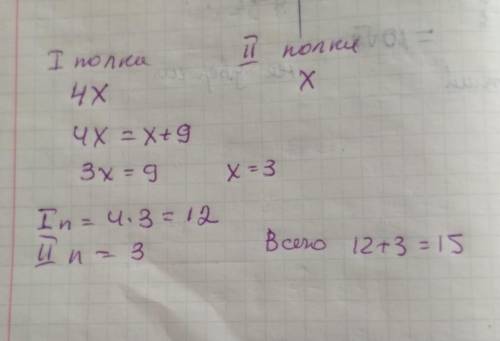 I полка II полка
4x x
4x = x+9
3x = 9 x = 3
I п = 4·3 = 12
II п = 3
Всего 12+3 = 15